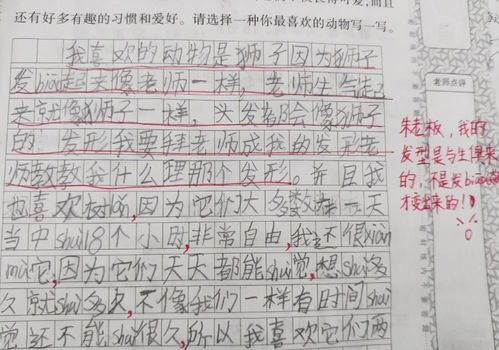 还有好多有趣的习惯和爱好。请选择一种你最喜欢的动物写一写。
我喜欢的动物是狮子因为狮子
发biao起来像老师一样，老师生气起
来就像狮子一样，头发都会像狮子
的发形我要拜老师成我的发形老
师教教我什么理那个发形。并且我
也喜欢树lǎn，因为它们大多数在一天
当中shui18个小时，非常自由，我还很xiàn
mù它，因为它们天天都能shuì觉，想shuì多
久就shuì多久，不像我们一样有时间shuì
觉还不能shuì很久，所以我喜欢它们两
老师点评
朱老板，我的
发型是与生俱来
的，不是发biao
才变出来的！